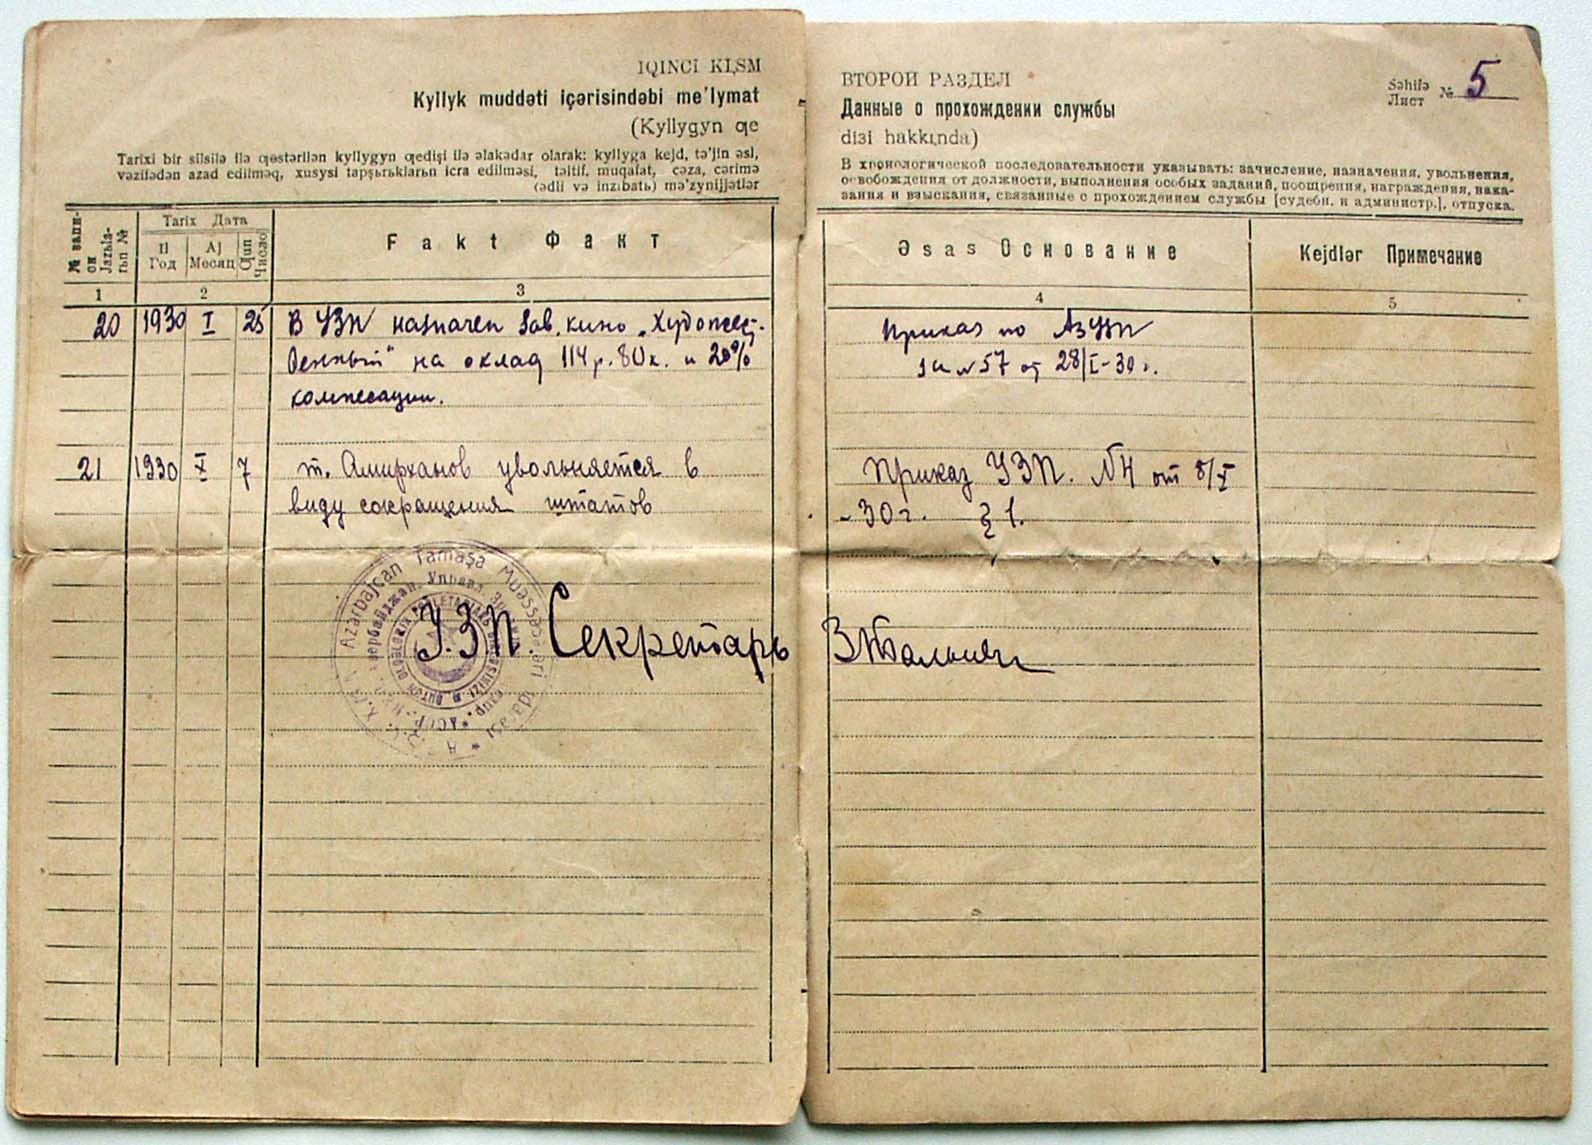 IQINCİ KЬSM
Kyllyk muddəti içərisindəbi me'lymat
(Kyllygyn qe
Tarixi bir silsilə ilə qɵstərilən kyllygyn qedişi ilə əlakədar olarak: kyllyga kejd, tə'jin əsl,
vəzifədən azad edilməq, xusysi tapşьrьklarьn icra edilməsi, təltif, muqafat, cəza, cərimə
(ədli və inzibatь) mə'zynijjətlər
№ запи-
си
Jazьla-
rьn №
Tarix Дата
Il
Год
Aj
Месяц
Qun
Число
Fakt Факт
1
2
3
20 1930 I 25 В УЗП назначен Зав. кино „Художест-
венный" на оклад 114 р. 80 к. и 20%
компесации.
21 1930 X 7 т. Амирханов увольняется в
виду сокращения штатов
Azərbajcan Tamaşa Muəssəsələri Idarəsi
У.З.П. Секретарь
ВТОРОЙ РАЗДЕЛ
Səhifə
Лист № 5
Данные о прохождении службы
dizi hakkьnda)
В хронологической последовательности указывать: зачисление, назначения, увольнения,
освобождения от должности, выполнения особых заданий, поощрения, награждения, нака-
зания и взыскания, связанные с прохождением службы [судебн. и администр.], отпуска.
Əsas Основание
Kejdlər Примечание
4
5
Приказ по АзУЗП
за № 57 от 28/I-30 г.
Приказ УЗП. №4 от 8/X
-30 г. § 1.